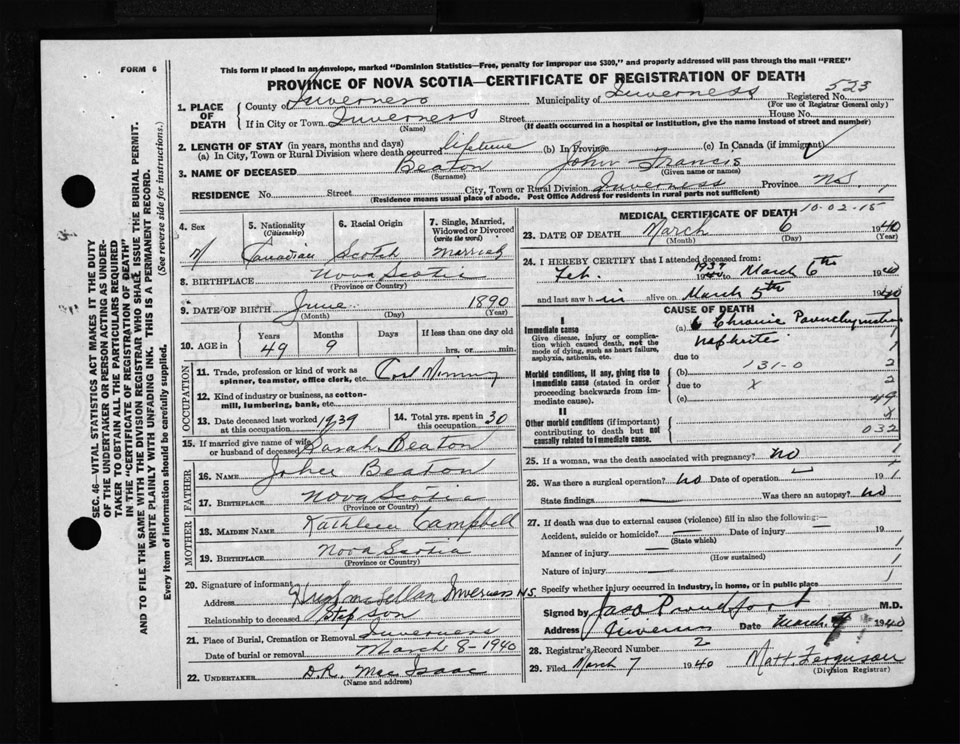 FORM 6
This form if placed in an envelope, marked "Dominion Statistics—Free, penalty for improper use $300," and properly addressed will pass through the mail "FREE"
PROVINCE OF NOVA SCOTIA—CERTIFICATE OF REGISTRATION OF DEATH
SEC. 46—VITAL STATISTICS ACT MAKES IT THE DUTY
OF THE UNDERTAKER OR PERSON ACTING AS UNDER-
TAKER TO OBTAIN ALL THE PARTICULARS REQUIRED
IN THE "CERTIFICATE OF REGISTRATION OF DEATH"
AND TO FILE THE SAME WITH THE DIVISION REGISTRAR WHO SHALL ISSUE THE BURIAL PERMIT.
WRITE PLAINLY WITH UNFADING INK. THIS IS A PERMANENT RECORD.
Every item of information should be carefully supplied. (See reverse side for instructions.)
1. PLACE OF DEATH County of Inverness Municipality of Inverness Registered No. 523
(For use of Registrar General only)
If in City or Town Inverness Street House No.
(Name) (If death occurred in a hospital or institution, give the name instead of street and number)
2. LENGTH OF STAY (in years, months and days)
(a) In City, Town or Rural Division where death occurred lifetime (b) In Province (c) In Canada (if immigrant) ✓
3. NAME OF DECEASED Beaton John Francis
(Surname) (Given name or names)
RESIDENCE No. Street City, Town or Rural Division Inverness Province N.S. 1
(Residence means usual place of abode. Post Office Address for residents in rural parts not sufficient)
4. Sex M
5. Nationality (Citizenship) Canadian
6. Racial Origin Scotch
7. Single, Married, Widowed or Divorced (write the word) Married
8. BIRTHPLACE Nova Scotia
(Province or Country)
9. DATE OF BIRTH June 1890
(Month) (Day) (Year)
10. AGE in Years 49 Months 9 Days If less than one day old hrs. or min.
OCCUPATION
11. Trade, profession or kind of work as spinner, teamster, office clerk, etc. Coal Mining
12. Kind of industry or business, as cotton-mill, lumbering, bank, etc.
13. Date deceased last worked at this occupation 1939
14. Total yrs. spent in this occupation 30
15. If married give name of wife or husband of deceased Sarah Beaton
FATHER
16. NAME John Beaton
17. BIRTHPLACE Nova Scotia
(Province or Country)
MOTHER
18. MAIDEN NAME Kathleen Campbell
19. BIRTHPLACE Nova Scotia
(Province or Country)
20. Signature of informant Hugh McLellan
Address Inverness N.S.
Relationship to deceased Step Son
21. Place of Burial, Cremation or Removal Inverness
Date of burial or removal March 8-1940
22. UNDERTAKER D.R. MacIsaac
(Name and address)
MEDICAL CERTIFICATE OF DEATH 10-02-15
23. DATE OF DEATH March 6 1940
(Month) (Day) (Year)
24. I HEREBY CERTIFY that I attended deceased from:
Feb. 1939 to March 6th 1940
and last saw him alive on March 5th 1940
CAUSE OF DEATH
I
Immediate cause
Give disease, injury or complication which caused death, not the mode of dying, such as heart failure, asphyxia, asthenia, etc.
(a) Chronic Parenchymatous
Nephritis 1
due to
Morbid conditions, if any, giving rise to immediate cause (stated in order proceeding backwards from immediate cause).
(b) 131-0 2
due to X 2
(c) 49
II X
Other morbid conditions (if important) contributing to death but not causally related to immediate cause. 032
25. If a woman, was the death associated with pregnancy? no 1
26. Was there a surgical operation? no Date of operation 191
State findings — Was there an autopsy? no
27. If death was due to external causes (violence) fill in also the following:—
Accident, suicide or homicide? — Date of injury 19 1
(State which)
Manner of injury — 1
(How sustained)
Nature of injury — 1
Specify whether injury occurred in industry, in home, or in public place
Signed by Jas. Proudfoot M.D.
Address Inverness Date March 1940
28. Registrar's Record Number 2
29. Filed March 7 1940 Matt. Ferguson
(Division Registrar)